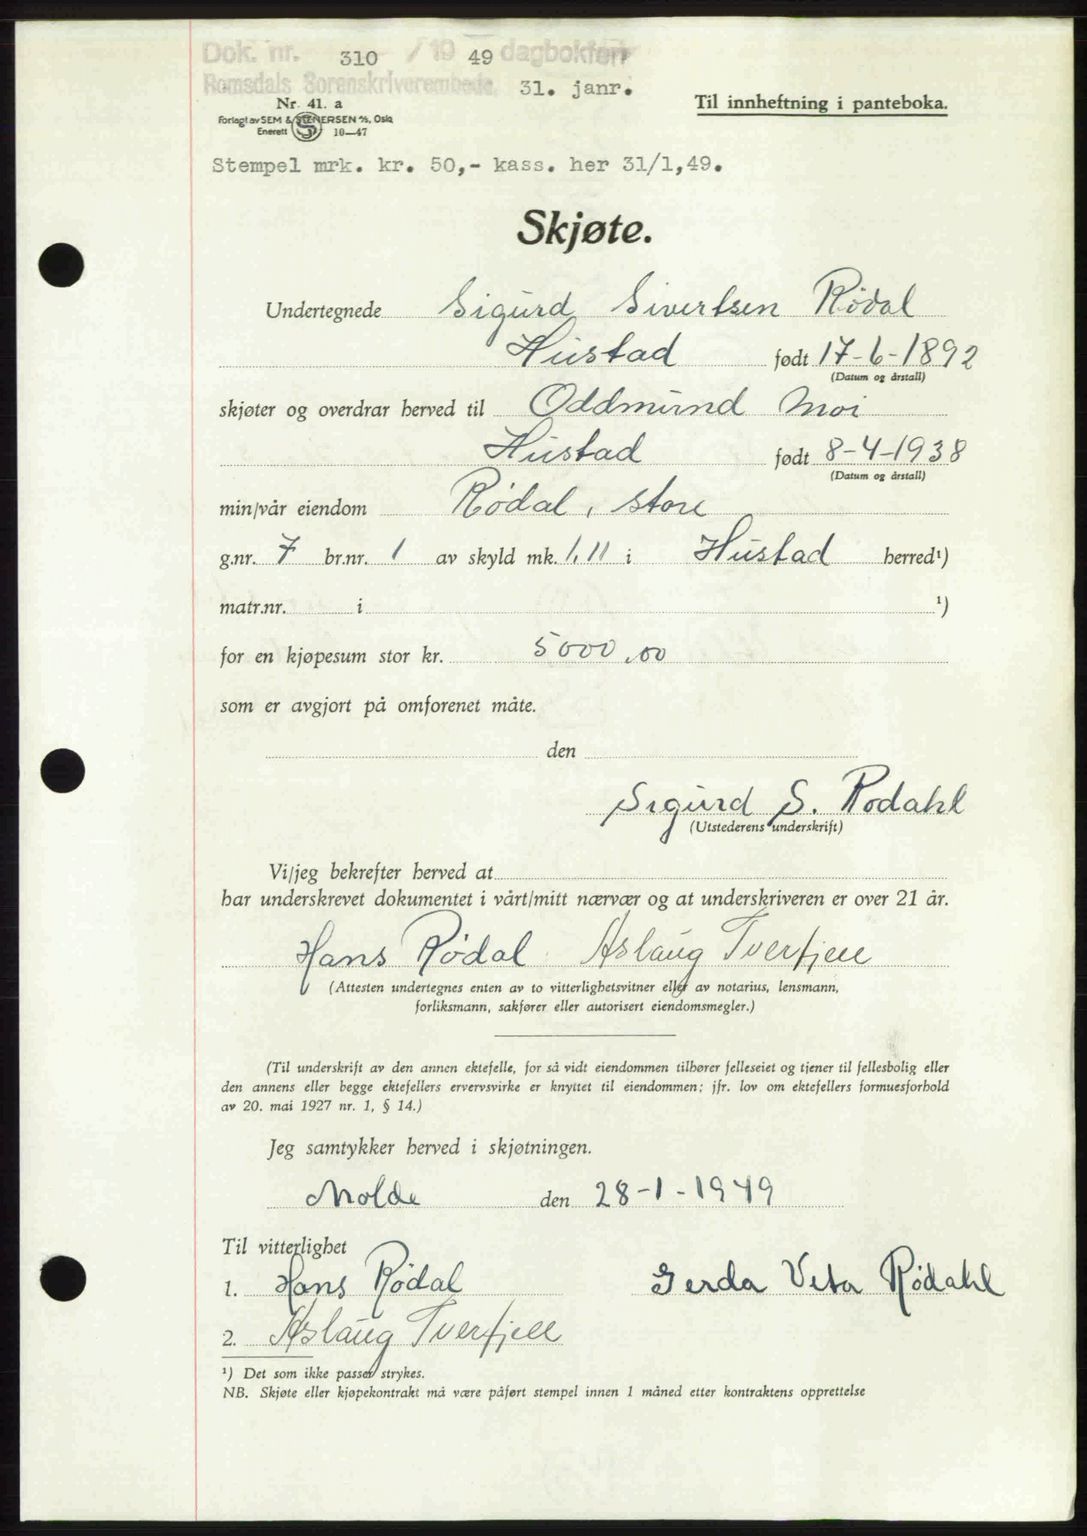 Dok. nr. 310 / 19 49 dagbokført
Romsdals Sorenskriverembede, 31. janr.
Nr. 41. a
Forlagt av SEM & STENERSEN A/S, Oslo
Enerett S 10—47
Til innheftning i panteboka.
Stempel mrk. kr. 50,- kass. her 31/1,49.
Skjøte.
Undertegnede Sigurd Sivertsen Rödal
Hustad født 17-6-1892
(Datum og årstall)
skjøter og overdrar herved til Oddmund Moi
Hustad født 8-4-1938
(Datum og årstall)
min/vår eiendom Rödal, store
g.nr. 7 br.nr. 1 av skyld mk. 1,11 i Hustad herred¹)
matr.nr. i ¹)
for en kjøpesum stor kr. 5000,00
som er avgjort på omforenet måte.
den
Sigurd S. Rødahl
(Utstederens underskrift)
Vi/jeg bekrefter herved at
har underskrevet dokumentet i vårt/mitt nærvær og at underskriveren er over 21 år.
Hans Rødal Aslaug Tverfjell
(Attesten undertegnes enten av to vitterlighetsvitner eller av notarius, lensmann,
forliksmann, sakfører eller autorisert eiendomsmegler.)
(Til underskrift av den annen ektefelle, for så vidt eiendommen tilhører felleseiet og tjener til fellesbolig eller
den annens eller begge ektefellers ervervsvirke er knyttet til eiendommen; jfr. lov om ektefellers formuesforhold
av 20. mai 1927 nr. 1, § 14.)
Jeg samtykker herved i skjøtningen.
Molde den 28-1-1949
Til vitterlighet
1. Hans Rødal Gerda Veta Rødahl
2. Aslaug Tverfjell
¹) Det som ikke passer strykes.
NB. Skjøte eller kjøpekontrakt må være påført stempel innen 1 måned etter kontraktens opprettelse